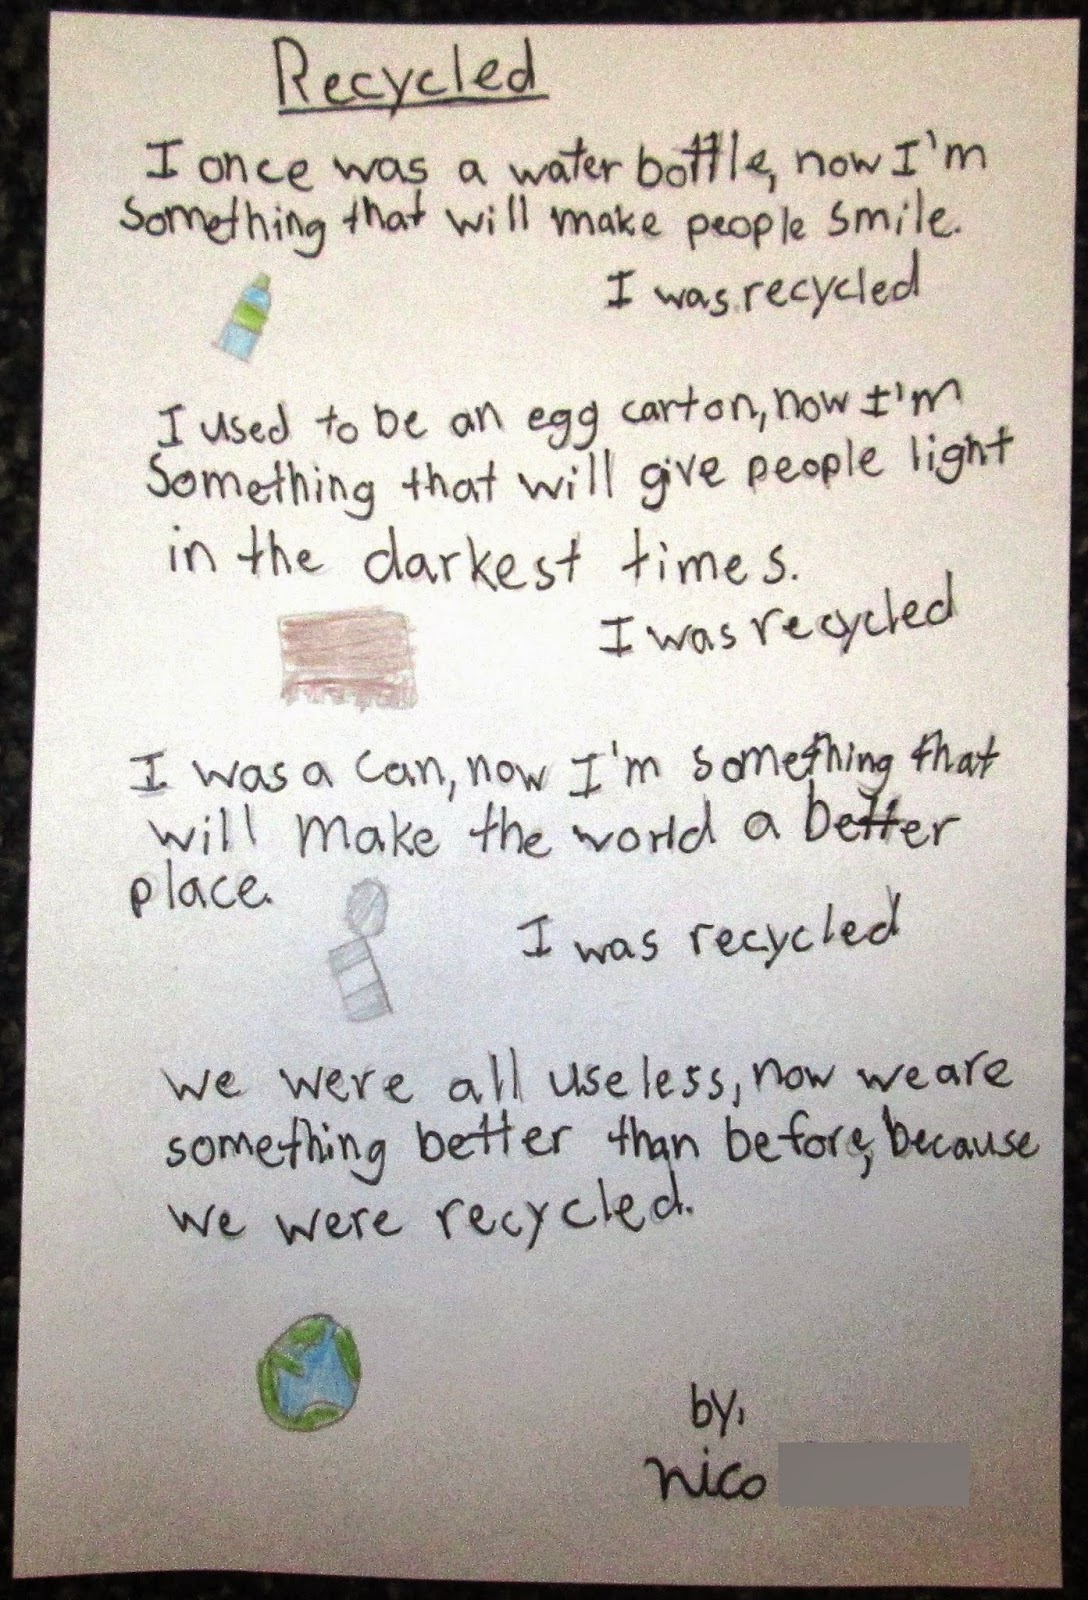 Recycled
I once was a water bottle, now I'm
something that will make people smile.
I was recycled
I used to be an egg carton, now I'm
something that will give people light
in the darkest times.
I was recycled
I was a can, now I'm something that
will make the world a better
place.
I was recycled
we were all useless, now we are
something better than before, because
we were recycled.
by,
nico